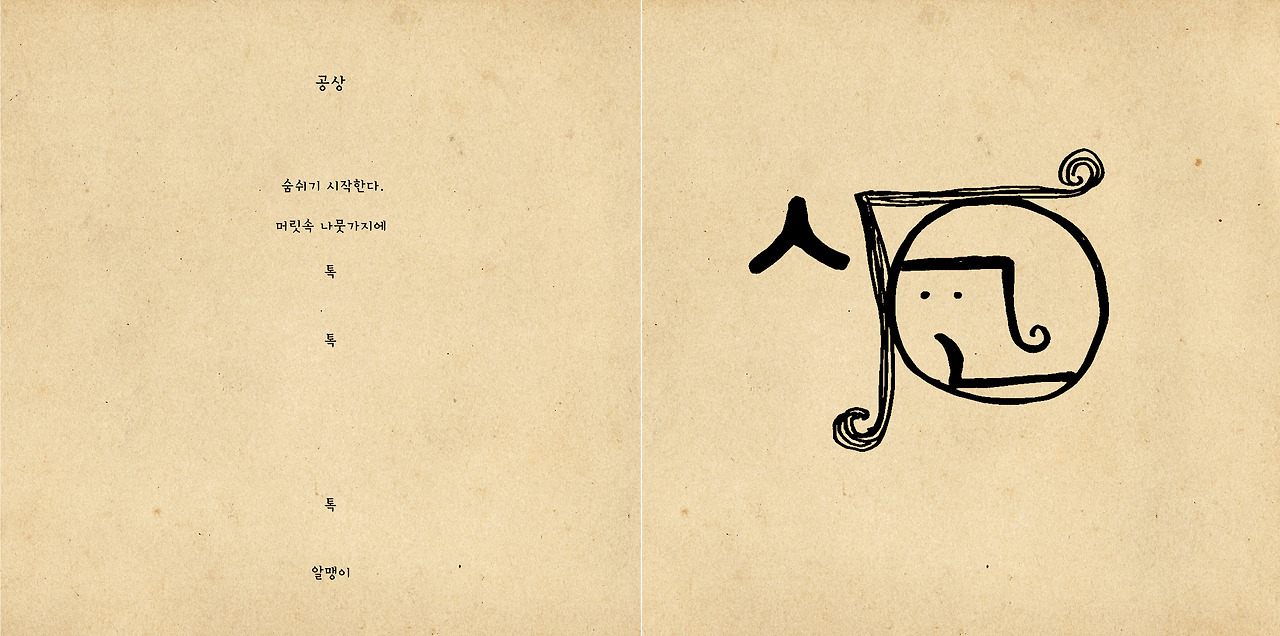 공상
숨쉬기 시작한다.
머릿속 나뭇가지에
톡
톡
톡
알맹이